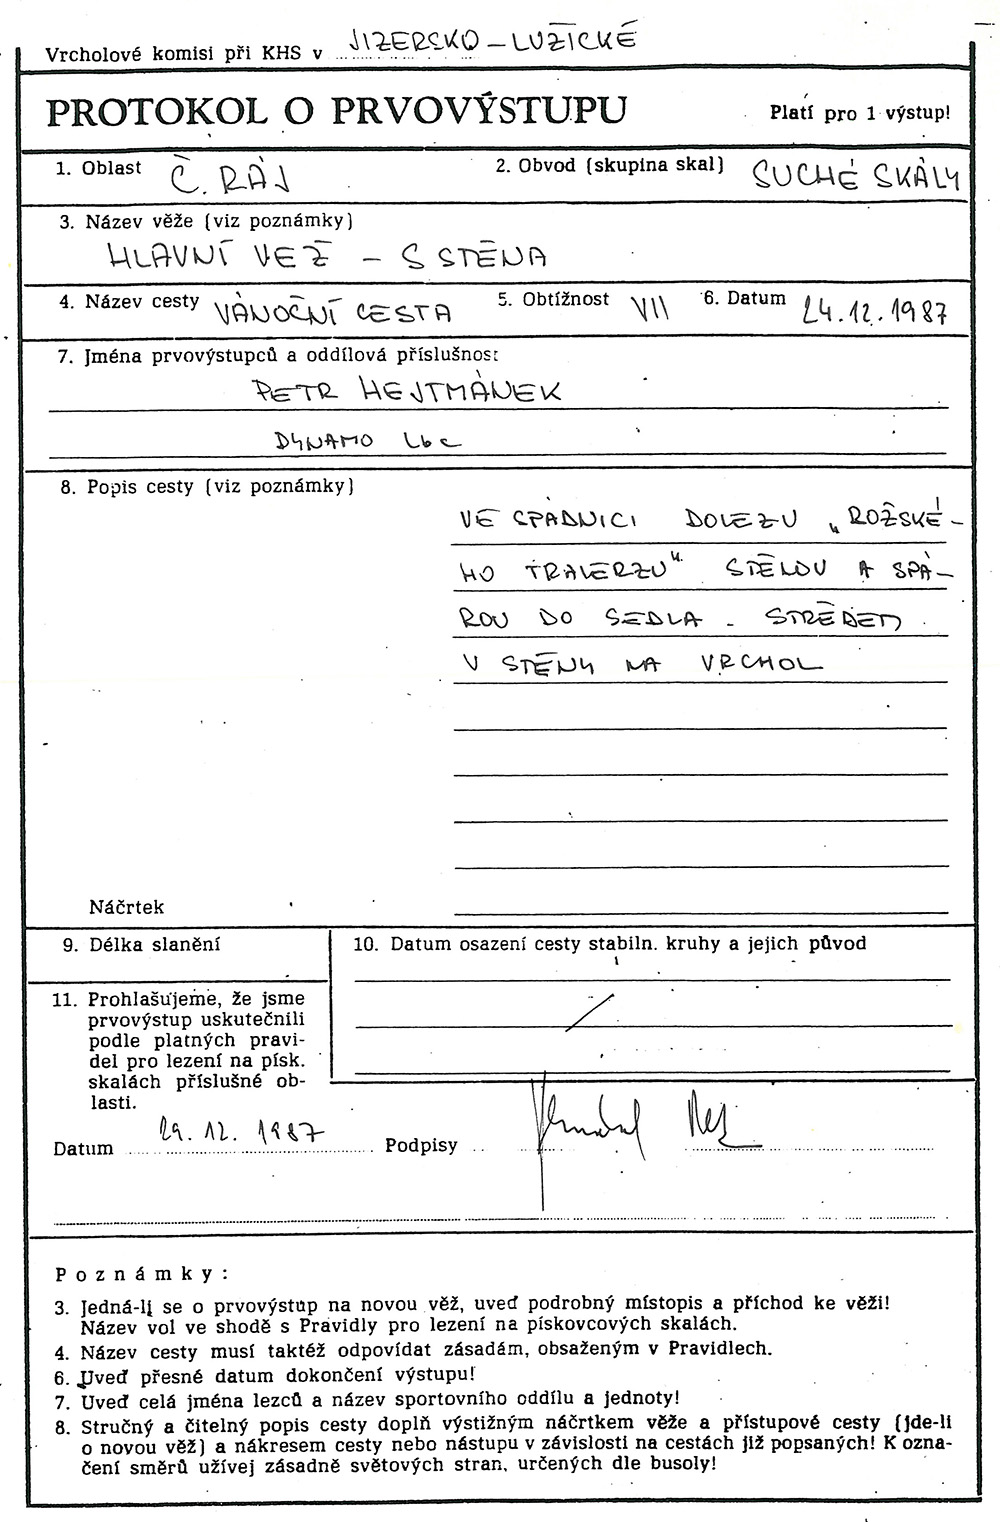 Vrcholové komisi při KHS v JIZERSKO – LUŽICKÉ
PROTOKOL O PRVOVÝSTUPU Platí pro 1 výstup!
1. Oblast Č. RÁJ 2. Obvod (skupina skal) SUCHÉ SKÁLY
3. Název věže (viz poznámky)
HLAVNÍ VEŽ – S STĚNA
4. Název cesty VÁNOČNÍ CESTA 5. Obtížnost VII 6. Datum 24.12.1987
7. Jména prvovýstupců a oddílová příslušnost
PETR HEJTMÁNEK
DYNAMO Lbc
8. Popis cesty (viz poznámky)
VE SPÁDNICI DOLEZU „ROŽSKÉ–
HO TRAVERZU" STĚNOU A SPÁ–
ROU DO SEDLA – STŘEDEM
V STĚNY NA VRCHOL
Náčrtek
9. Délka slanění
10. Datum osazení cesty stabiln. kruhy a jejich původ
11. Prohlašujeme, že jsme
prvovýstup uskutečnili
podle platných pravi-
del pro lezení na písk.
skalách příslušné ob-
lasti.
Datum 29. 12. 1987 Podpisy
Poznámky:
3. Jedná-li se o prvovýstup na novou věž, uveď podrobný místopis a příchod ke věži!
Název vol ve shodě s Pravidly pro lezení na pískovcových skalách.
4. Název cesty musí taktéž odpovídat zásadám, obsaženým v Pravidlech.
6. Uveď přesné datum dokončení výstupu!
7. Uveď celá jména lezců a název sportovního oddílu a jednoty!
8. Stručný a čitelný popis cesty doplň výstižným náčrtkem věže a přístupové cesty (jde-li
o novou věž) a nákresem cesty nebo nástupu v závislosti na cestách již popsaných! K ozna-
čení směrů užívej zásadně světových stran, určených dle busoly!